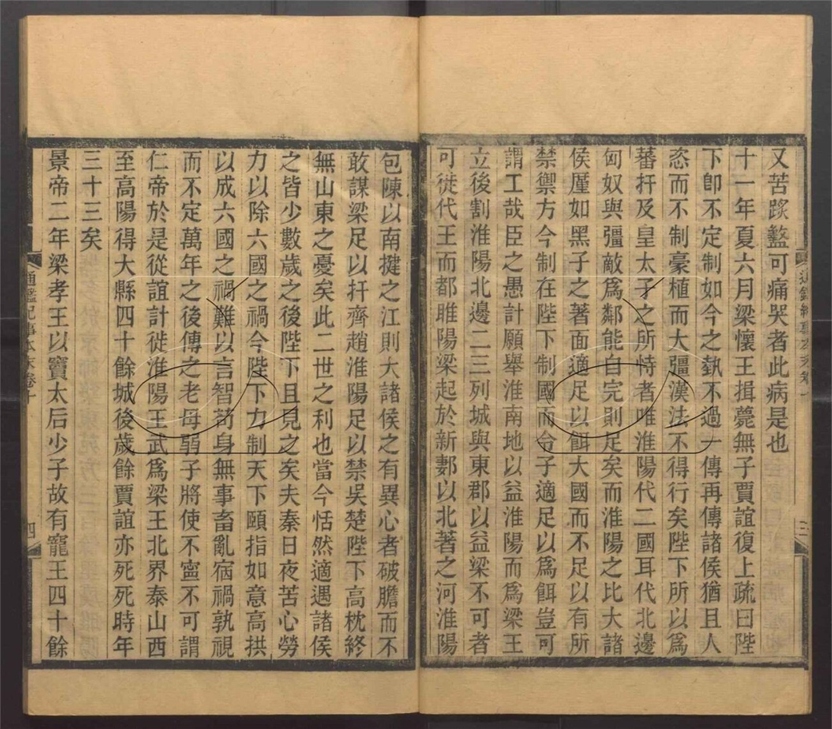 又苦蹊盭可痛哭者此病是也
十一年夏六月梁懷王揖薨無子賈誼復上疏曰陛
下卽不定制如今之埶不過一傳再傳諸侯猶且人
恣而不制豪植而大彊漢法不得行矣陛下所以爲
蕃扞及皇太子之所恃者唯淮陽代二國耳代北邊
匈奴與彊敵爲鄰能自完則足矣而淮陽之比大諸
侯廑如黑子之著面適足以餌大國而不足以有所
禁禦方今制在陛下制國而令子適足以爲餌豈可
謂工哉臣之愚計願舉淮南地以益淮陽而爲梁王
立後割淮陽北邊二三列城與東郡以益梁不可者
可徙代王而都睢陽梁起於新郪以北著之河淮陽
通鑑紀事本末卷十
三
包陳以南揵之江則大諸侯之有異心者破膽而不
敢謀梁足以扞齊趙淮陽足以禁吳楚陛下高枕終
無山東之憂矣此二世之利也當今恬然適遇諸侯
之皆少數歲之後陛下且見之矣夫秦日夜苦心勞
力以除六國之禍今陛下力制天下頤指如意高拱
以成六國之禍難以言智苟身無事畜亂宿禍孰視
而不定萬年之後傳之老母弱子將使不寧不可謂
仁帝於是從誼計徙淮陽王武爲梁王北界泰山西
至高陽得大縣四十餘城後歲餘賈誼亦死死時年
三十三矣
景帝二年梁孝王以竇太后少子故有寵王四十餘
通鑑紀事本末卷十
四